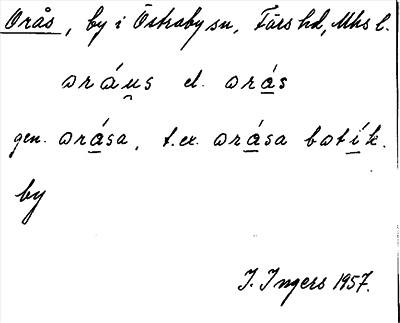 Orås, by i Östraby sn, Färs hd, Mhs l.
oráu̯s el. orás
gen. orása, t.ex. orása botík.
by
I. Ingers 1957.